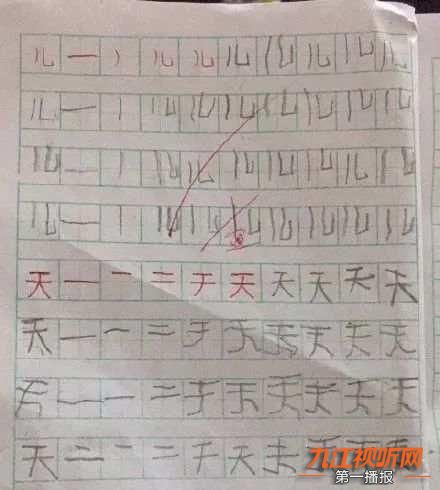 儿 一 丿 儿 儿 儿 儿 儿 儿 儿
儿 一 丨 儿 儿 儿 儿 儿 儿 儿
儿 一 丨 儿 儿 儿 儿 儿 儿 儿
儿 一 丨 儿 儿 儿 儿 儿 儿 儿
天 一 一 二 于 天 天 天 天 天
天 一 一 二 于 天 天 天 天 天
天 一 一 二 于 天 天 天 天 天
天 二 一 二 于 天 天
九江视听网
第一播报